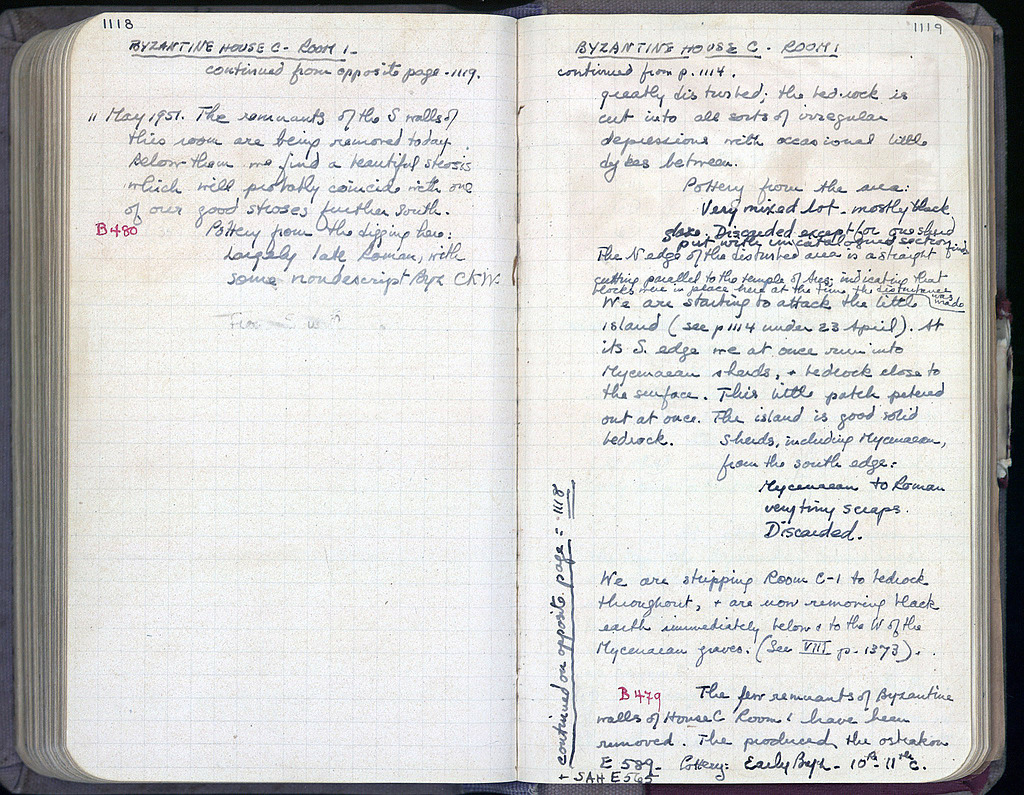 1118
BYZANTINE HOUSE C - ROOM 1 -
continued from opposite page - 1119.
11 May 1951. The remnants of the S walls of
this room are being removed today.
Below them we find a beautiful strosis
which will probably coincide with one
of our good stroses further south.
B 480 Pottery from the digging here:
Largely late Roman, with
some nondescript Byz CKW.
1119
BYZANTINE HOUSE C - ROOM 1
continued from p. 1114.
greatly disturbed; the bedrock is
cut into all sorts of irregular
depressions with occasional little
dykes between.
Pottery from the area:
Very mixed lot - mostly black
glaze. Discarded except for one sherd
put with uncatalogued section finds
The N edge of the disturbed area is a straight
cutting parallel to the temple of Ares, indicating that
blocks were in place here at the time the disturbance was made
We are starting to attack the little
island (see p 1114 under 23 April). At
its S. edge we at once run into
Mycenaean sherds, + bedrock close to
the surface. This little patch petered
out at once. The island is good solid
bedrock. Sherds, including Mycenaean,
from the south edge:
Mycenaean to Roman
very tiny scraps.
Discarded.
We are stripping Room C-1 to bedrock
throughout, + are now removing black
earth immediately below + to the W of the
Mycenaean graves. (See VIII p. 1373).
B 479 The few remnants of Byzantine
walls of House C Room 1 have been
removed. The produced the ostrakon
E 589 - Pottery: Early Byz. - 10th - 11th c.
+ SAH E 565
continued on opposite page = 1118